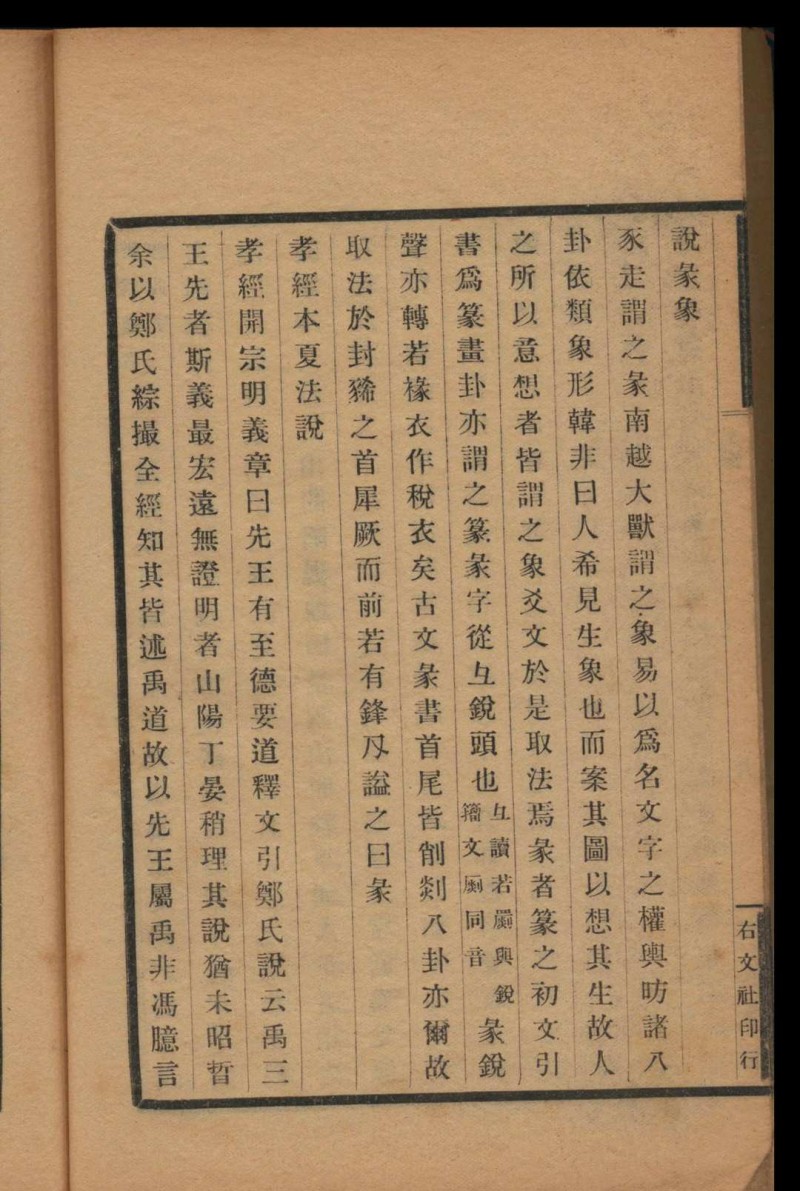 說彖象
豕走謂之彖南越大獸謂之象易以爲名文字之權輿昉諸八
卦依類象形韓非曰人希見生象也而案其圖以想其生故人
之所以意想者皆謂之象爻文於是取法焉彖者篆之初文引
書爲篆畫卦亦謂之篆彖字從彑銳頭也彑讀若罽與銳籒文㓹同音彖銳
聲亦轉若褖衣作稅衣矣古文彖書首尾皆削剡八卦亦爾故
取法於封豨之首犀厥而前若有鋒刄謚之曰彖
孝經本夏法說
孝經開宗明義章曰先王有至德要道釋文引鄭氏說云禹三
王先者斯義最宏遠無證明者山陽丁晏稍理其說猶未昭晢
余以鄭氏綜撮全經知其皆述禹道故以先王屬禹非馮臆言
右文社印行